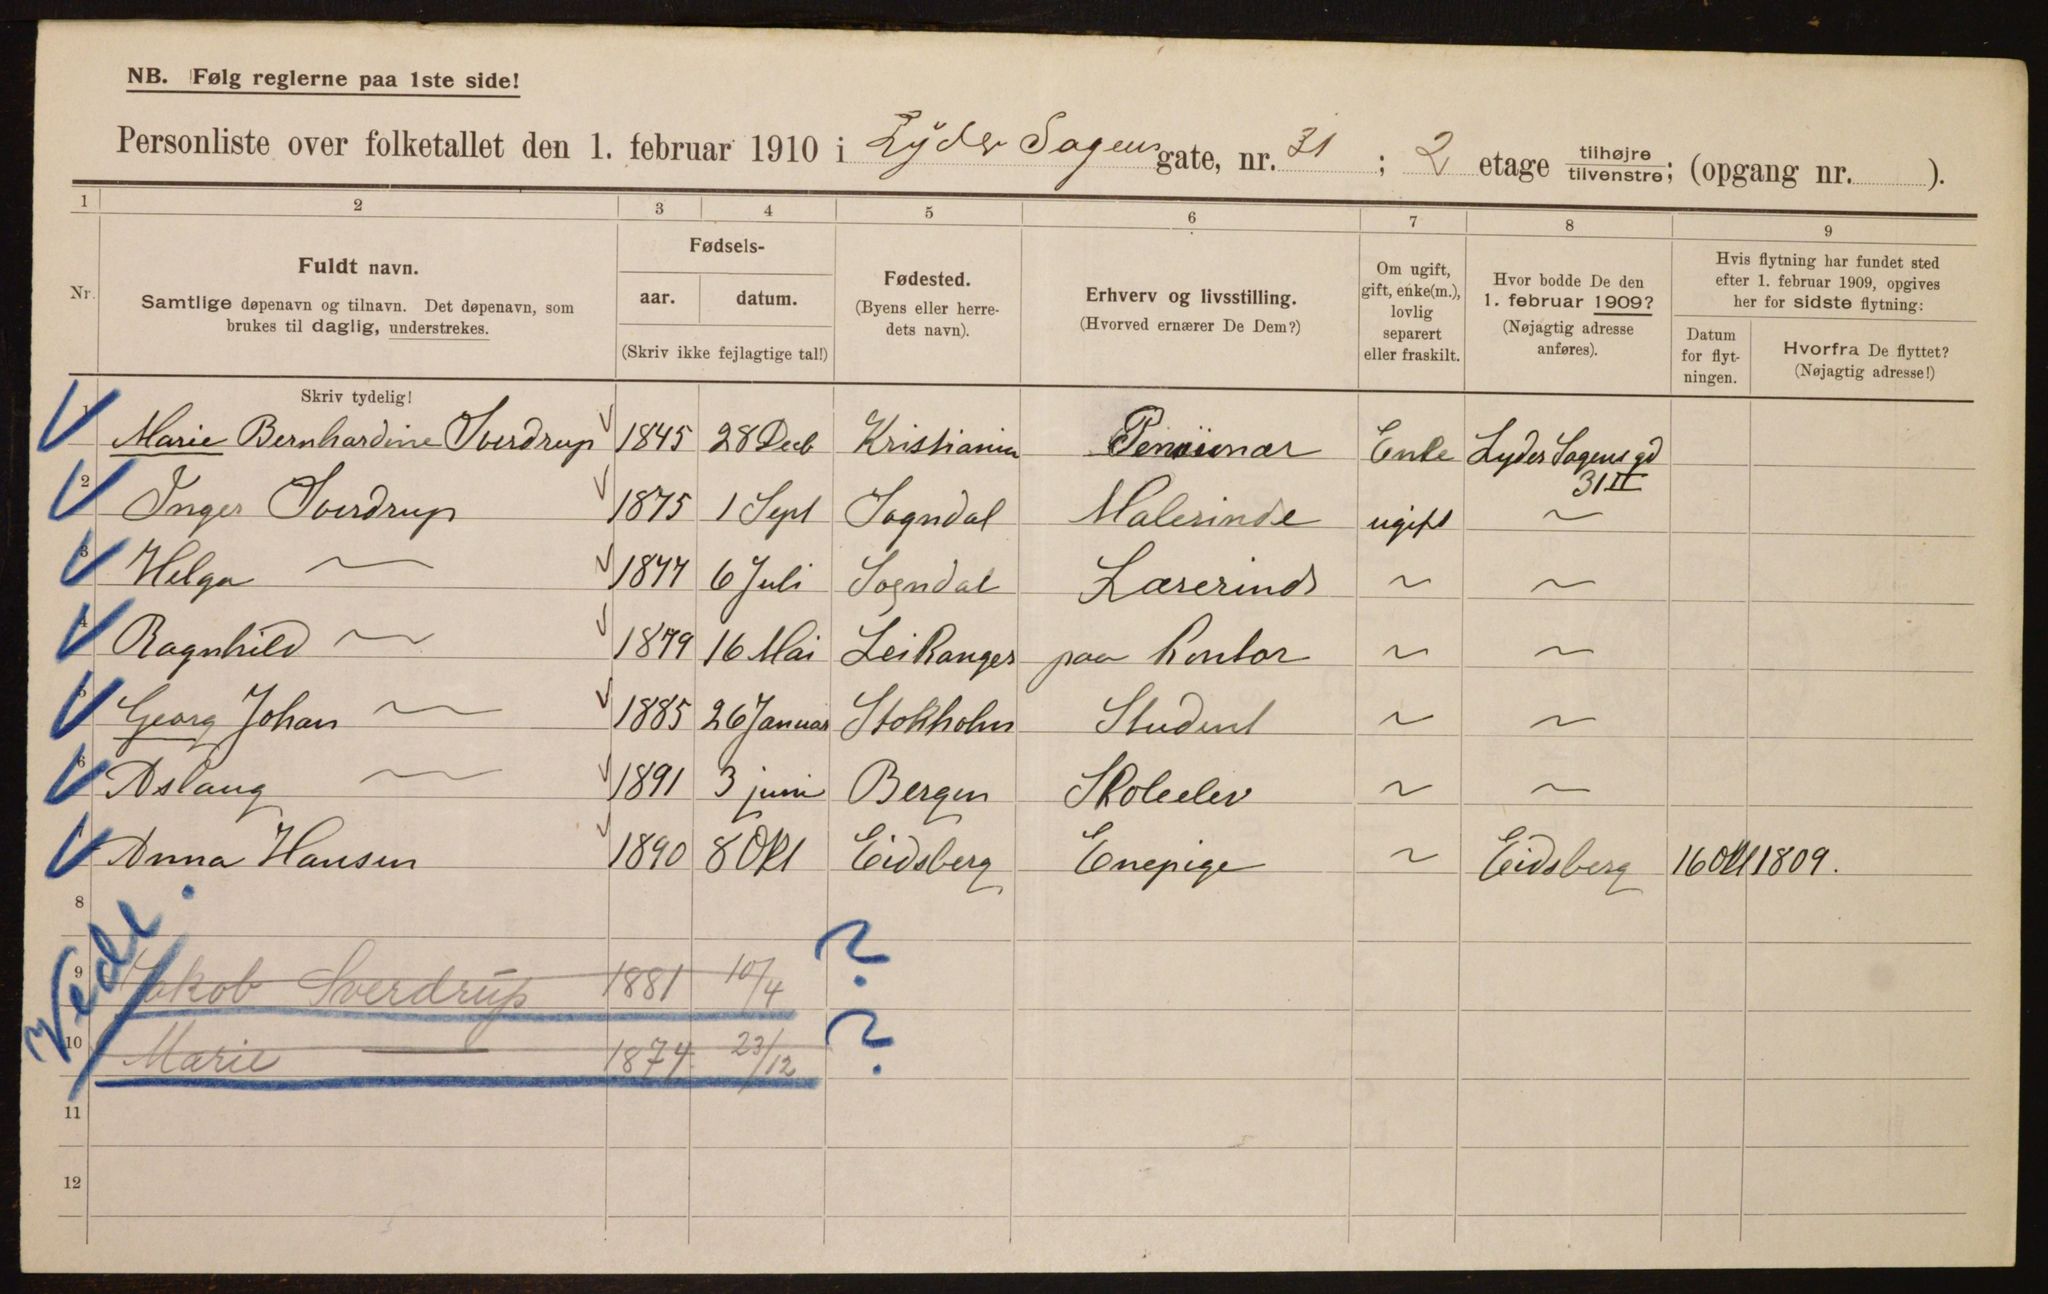 NB. Følg reglerne paa 1ste side!
Personliste over folketallet den 1. februar 1910 i Lyder Sagens gate, nr. 31 ; 2 etage tilhøjre/tilvenstre; (opgang nr. ).
1 2 3 4 5 6 7 8 9
Nr. Fuldt navn. Samtlige døpenavn og tilnavn. Det døpenavn, som brukes til daglig, understrekes.
Fødsels- aar. datum. (Skriv ikke fejlagtige tal!)
Fødested. (Byens eller herredets navn).
Erhverv og livsstilling. (Hvorved ernærer De Dem?)
Om ugift, gift, enke(m.), lovlig separert eller fraskilt.
Hvor bodde De den 1. februar 1909? (Nøjagtig adresse anføres).
Hvis flytning har fundet sted efter 1. februar 1909, opgives her for sidste flytning:
Datum for flytningen. Hvorfra De flyttet? (Nøjagtig adresse!)
Skriv tydelig!
1 Marie Bernhardine Sverdrup 1845 28 Decb Kristiania Pensiunær Enke Lyder Sagens gd 31 II
2 Inger Sverdrup 1875 1 Sept Sogndal Malerinde ugift ~
3 Helga ~ 1877 6 Juli Sogndal Lærerinde ~ ~
4 Ragnhild ~ 1879 16 Mai Leikanger paa Kontor ~ ~
5 Georg Johan ~ 1885 26 Januar Stokholm Student ~ ~
6 Aslaug ~ 1891 3 juni Bergen Skoleelev ~ ~
7 Anna Hansen 1890 8 Okt Eidsberg Enepige ~ Eidsberg 16 Okt 1809.
8
9 Jakob Sverdrup 1881 10/4 ?
10 Marie — 1874 23/12 ?
11
12